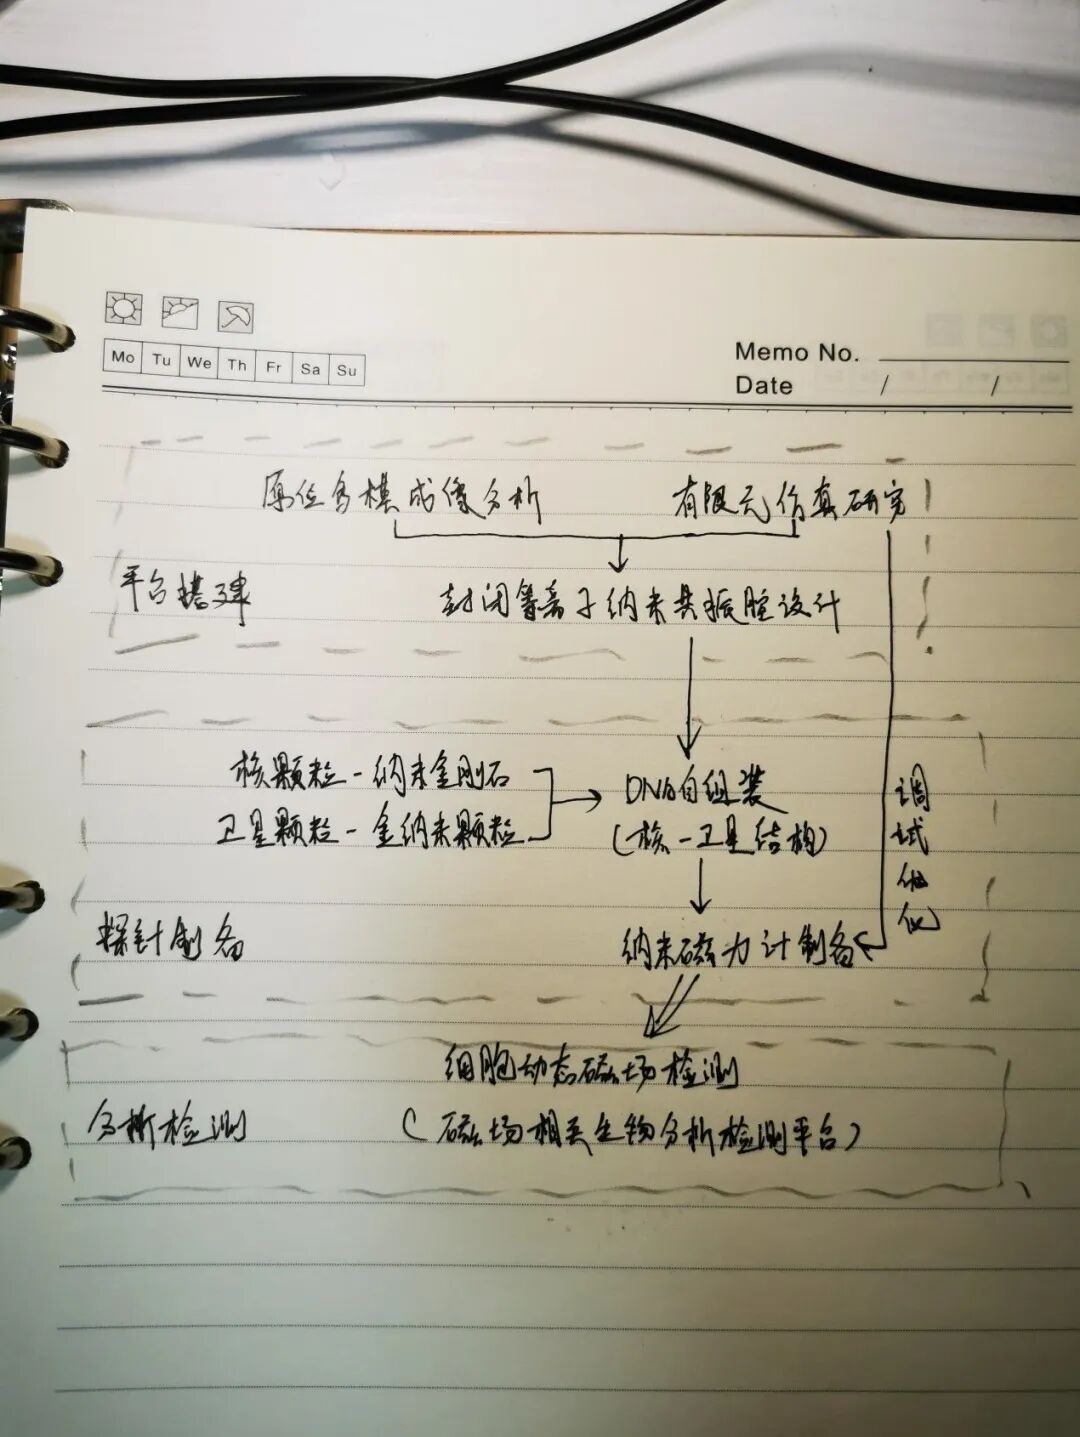 Mo Tu We Th Fr Sa Su
Memo No.
Date / /
原位多模成像分析 有限元仿真研究
平台搭建 封闭等离子纳米共振腔设计
核颗粒-纳米金刚石
卫星颗粒-金纳米颗粒
DNA自组装
(核-卫星结构)
调试优化
探针制备 纳米磁力计制备
细胞动态磁场检测
分析检测 (磁场相关生物分析检测平台)